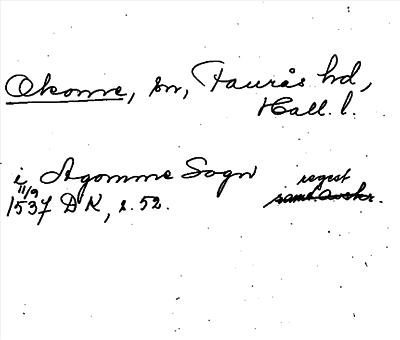 Okome, sn, Faurås hd,
Hall. l.
i Agomme Sogn
11/9 regest
1537 DK, s. 52. samt. avskr.